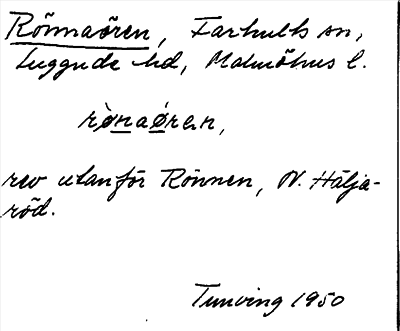 Rönnaören, Farhults sn,
Luggude hd, Malmöhus l.
rø̀naøren,
rev utanför Rönnen, N. Hälja-
röd.
Tunving 1950